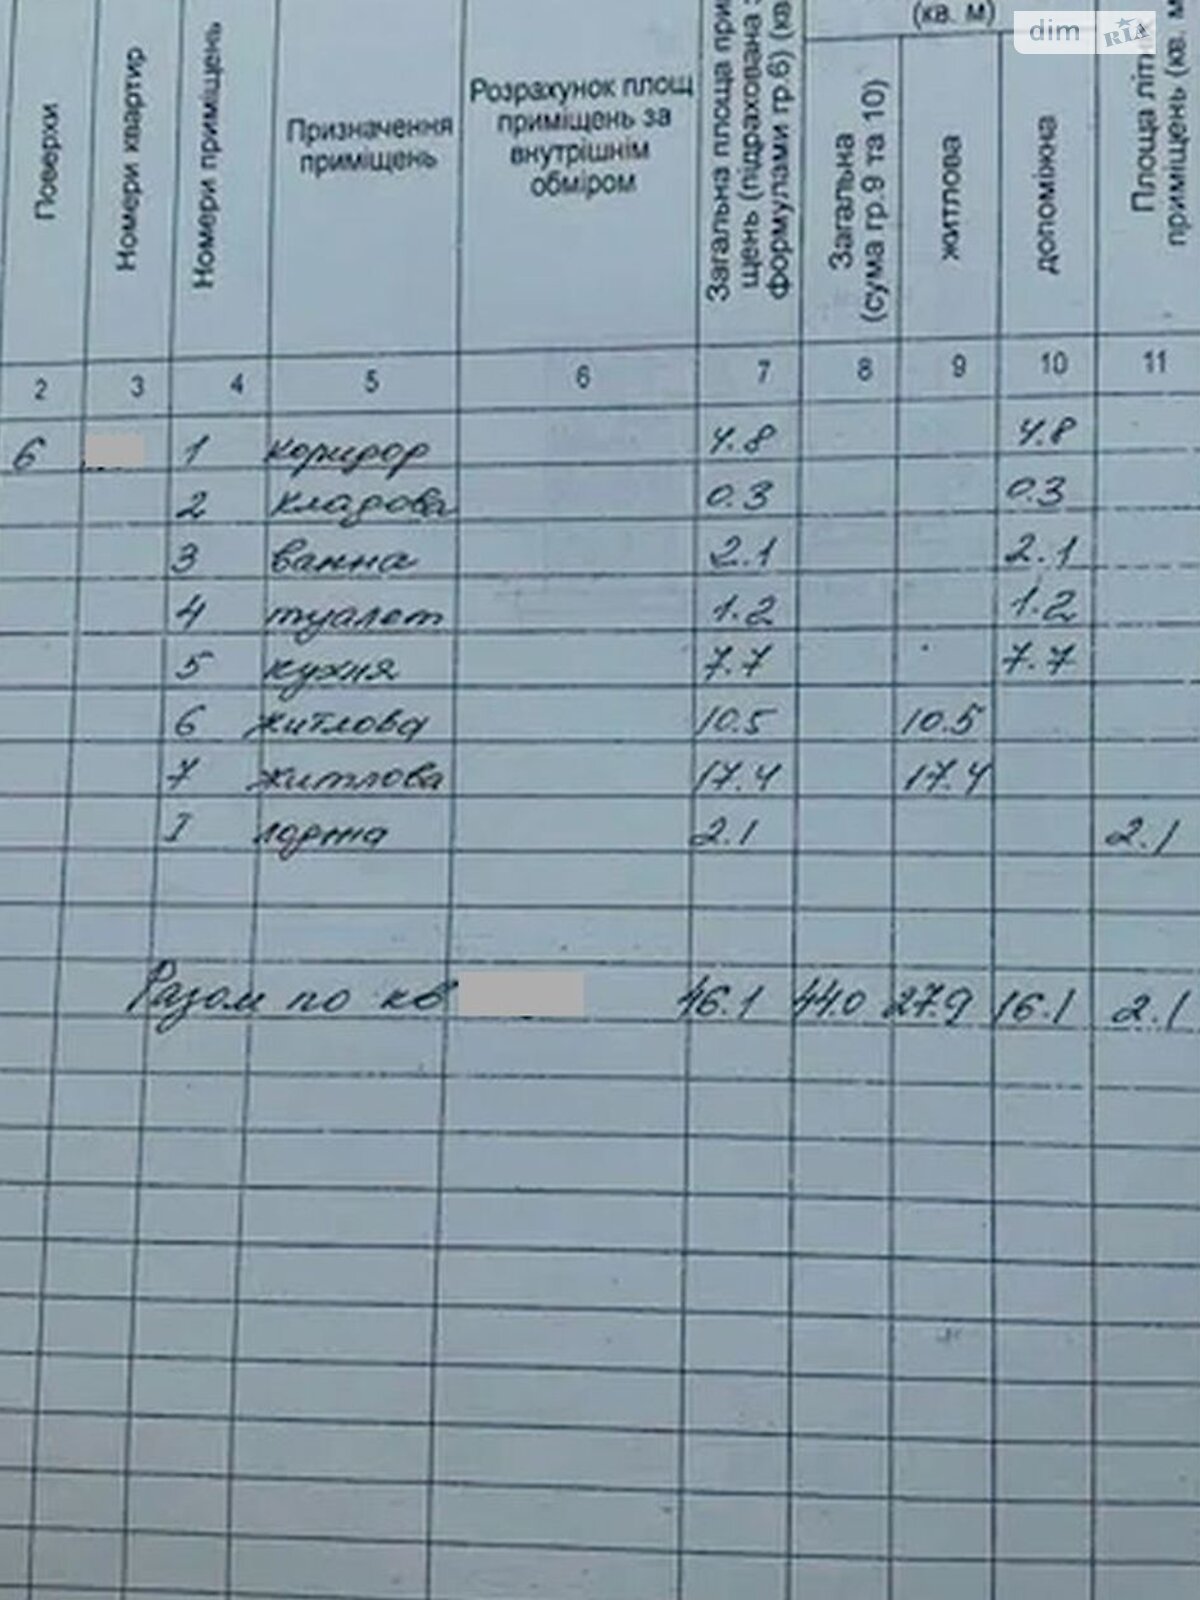 (кв. м)
dim RIA
Поверхи
Номери квартир
Номери приміщень
Призначення
приміщень
Розрахунок площ
приміщень за
внутрішнім
обміром
Загальна площа при
щень (підрахована з
формулами гр.6) (кв
Загальна
(сума гр.9 та 10)
житлова
допоміжна
Площа літн
приміщень (кв. м
2 3 4 5 6 7 8 9 10 11
6 1 коридор 4.8 4.8
2 кладова 0.3 0.3
3 ванна 2.1 2.1
4 туалет 1.2 1.2
5 кухня 7.7 7.7
6 житлова 10.5 10.5
7 житлова 17.4 17.4
I лоджа 2.1 2.1
Разом по кв 46.1 44.0 27.9 16.1 2.1